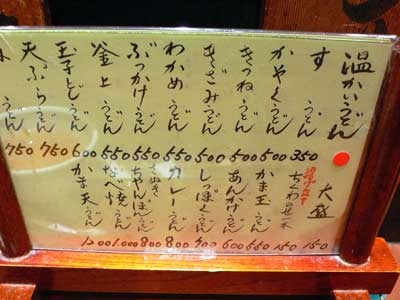 温かいうどん
すうどん 350
かやくうどん 500
きつねうどん 500
きざみうどん 500
わかめうどん 550
ぶっかけうどん 550
釜上うどん 550
玉子とじうどん 600
天ぷらうどん 750
750
大盛 150
揚げ立て ちくわのせ一本 150
かま玉うどん 550
あんかけうどん 600
しっぽくうどん 700
カレーうどん 800
たぬき
ちゃんぽんうどん 800
なべ焼うどん 1,000
かま天うどん